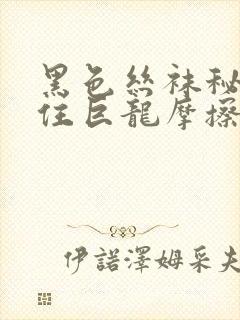 黑色絲袜秘
住巨龍摩擦
伊諾澤姆采夫